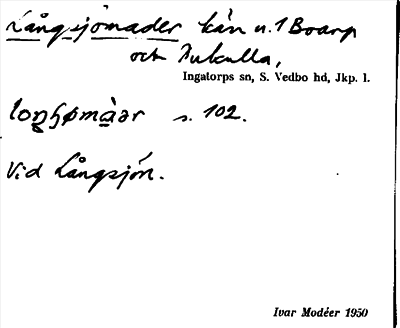 Långsjömader kän n. 1 Boarp
och Pukulla,
Ingatorps sn, S. Vedbo hd, Jkp. l.
s. 102.
Vid Långsjön.
Ivar Modéer 1950